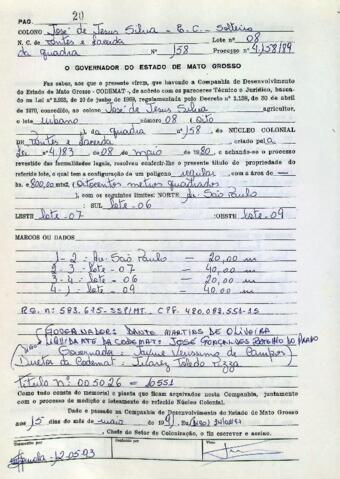 PAG. 20
COLONO José de Jesus Silva - E.C - Solteiro
N. C. de Pontes e Lacerda Lote nº 08
da quadra Nº 158 Processo nº 4.158/89
O GOVERNADOR DO ESTADO DE MATO GROSSO
Faz saber, aos que o presente virem, que havendo a Companhia de Desenvolvimento
do Estado de Mato Grosso - CODEMAT -, de acordo com os pareceres Técnico e Jurídico, basea-
da na Lei nº 2.922, de 10 de junho de 1969, regulamentada pelo Decreto nº 1.138, de 30 de abril
de 1970, concedido, ao colono José de Jesus Silva agricultor,
o lote urbano número 08 (oito
da quadra nº 158, DO NÚCLEO COLONIAL
DE Pontes e Lacerda criado pela
Lei nº 4.183 de 08 de maio de 1980, e achando-se o processo
revestido das formalidades legais, resolveu conferir-lhe o presente título de propriedade do
referido lote, o qual tem a configuração de um polígono regular, com a área de
hs. 800,00 mts2. (Oitocentos metros quadrados
), com os seguintes limites: NORTE Av. São Paulo
: SUL lote-06
LESTE lote-07 :OESTE lote-09
MARCOS OU DADOS
1-2: Av. São Paulo - 20,00 m
2-3: lote-07 - 40,00 m
3-4: lote-06 - 20,00 m
4-1: lote-09 - 40,00 m
R.G. nº: 583.675-SSP/MT. CPF. 480.082.551-15
GOVERNADOR: DANTE MARTINS DE OLIVEIRA
LIQUIDANTE DA CODEMAT: JOSÉ GONÇALVES BOTELHO DO PRADO
Governador: Jayme Verissimo de Campos
Diretor da Codemat: Juarez Toledo Pizza
Título nº 005026 - 6551
Como tudo consta do memorial e planta que ficam arquivados nesta Companhia, juntamente
com o processo de medição e loteamento do referido Núcleo Colonial.
Dado e passado na Companhia de Desenvolvimento do Estado de Mato Grosso
aos 15 dias do mês de maio de 199
, Chefe do Setor de Colonização, o fiz escrever e assino.
Transcrito por
Visto
12.05.93